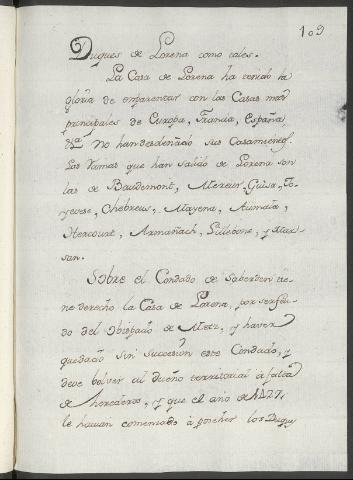 109
Duques de Lorena como tales.
La Casa de Lorena ha tenido la
gloria de emparentar con las Casas mas
principales de Europa, Francia, España,
&.ª No han desdeñado sus Casamientos.
Las Ramas que han salido de Lorena son
las de Baudemont, Mercur, Guisa, Jo-
yevse, Chebreus, Mayena, Aumala,
Harcourt, Armañach, Lillebone, y Mar-
san.
Sobre el Condado de Saberden tie-
ne derecho la Casa de Lorena, por ser feu-
do del Obispado de Metz, y haver
quedado sin succesion este Condado, y
deve bolver al dueño territorial à falta
de herederos, y que el año de 1527,
le havian comenzado à poseher los Duqu